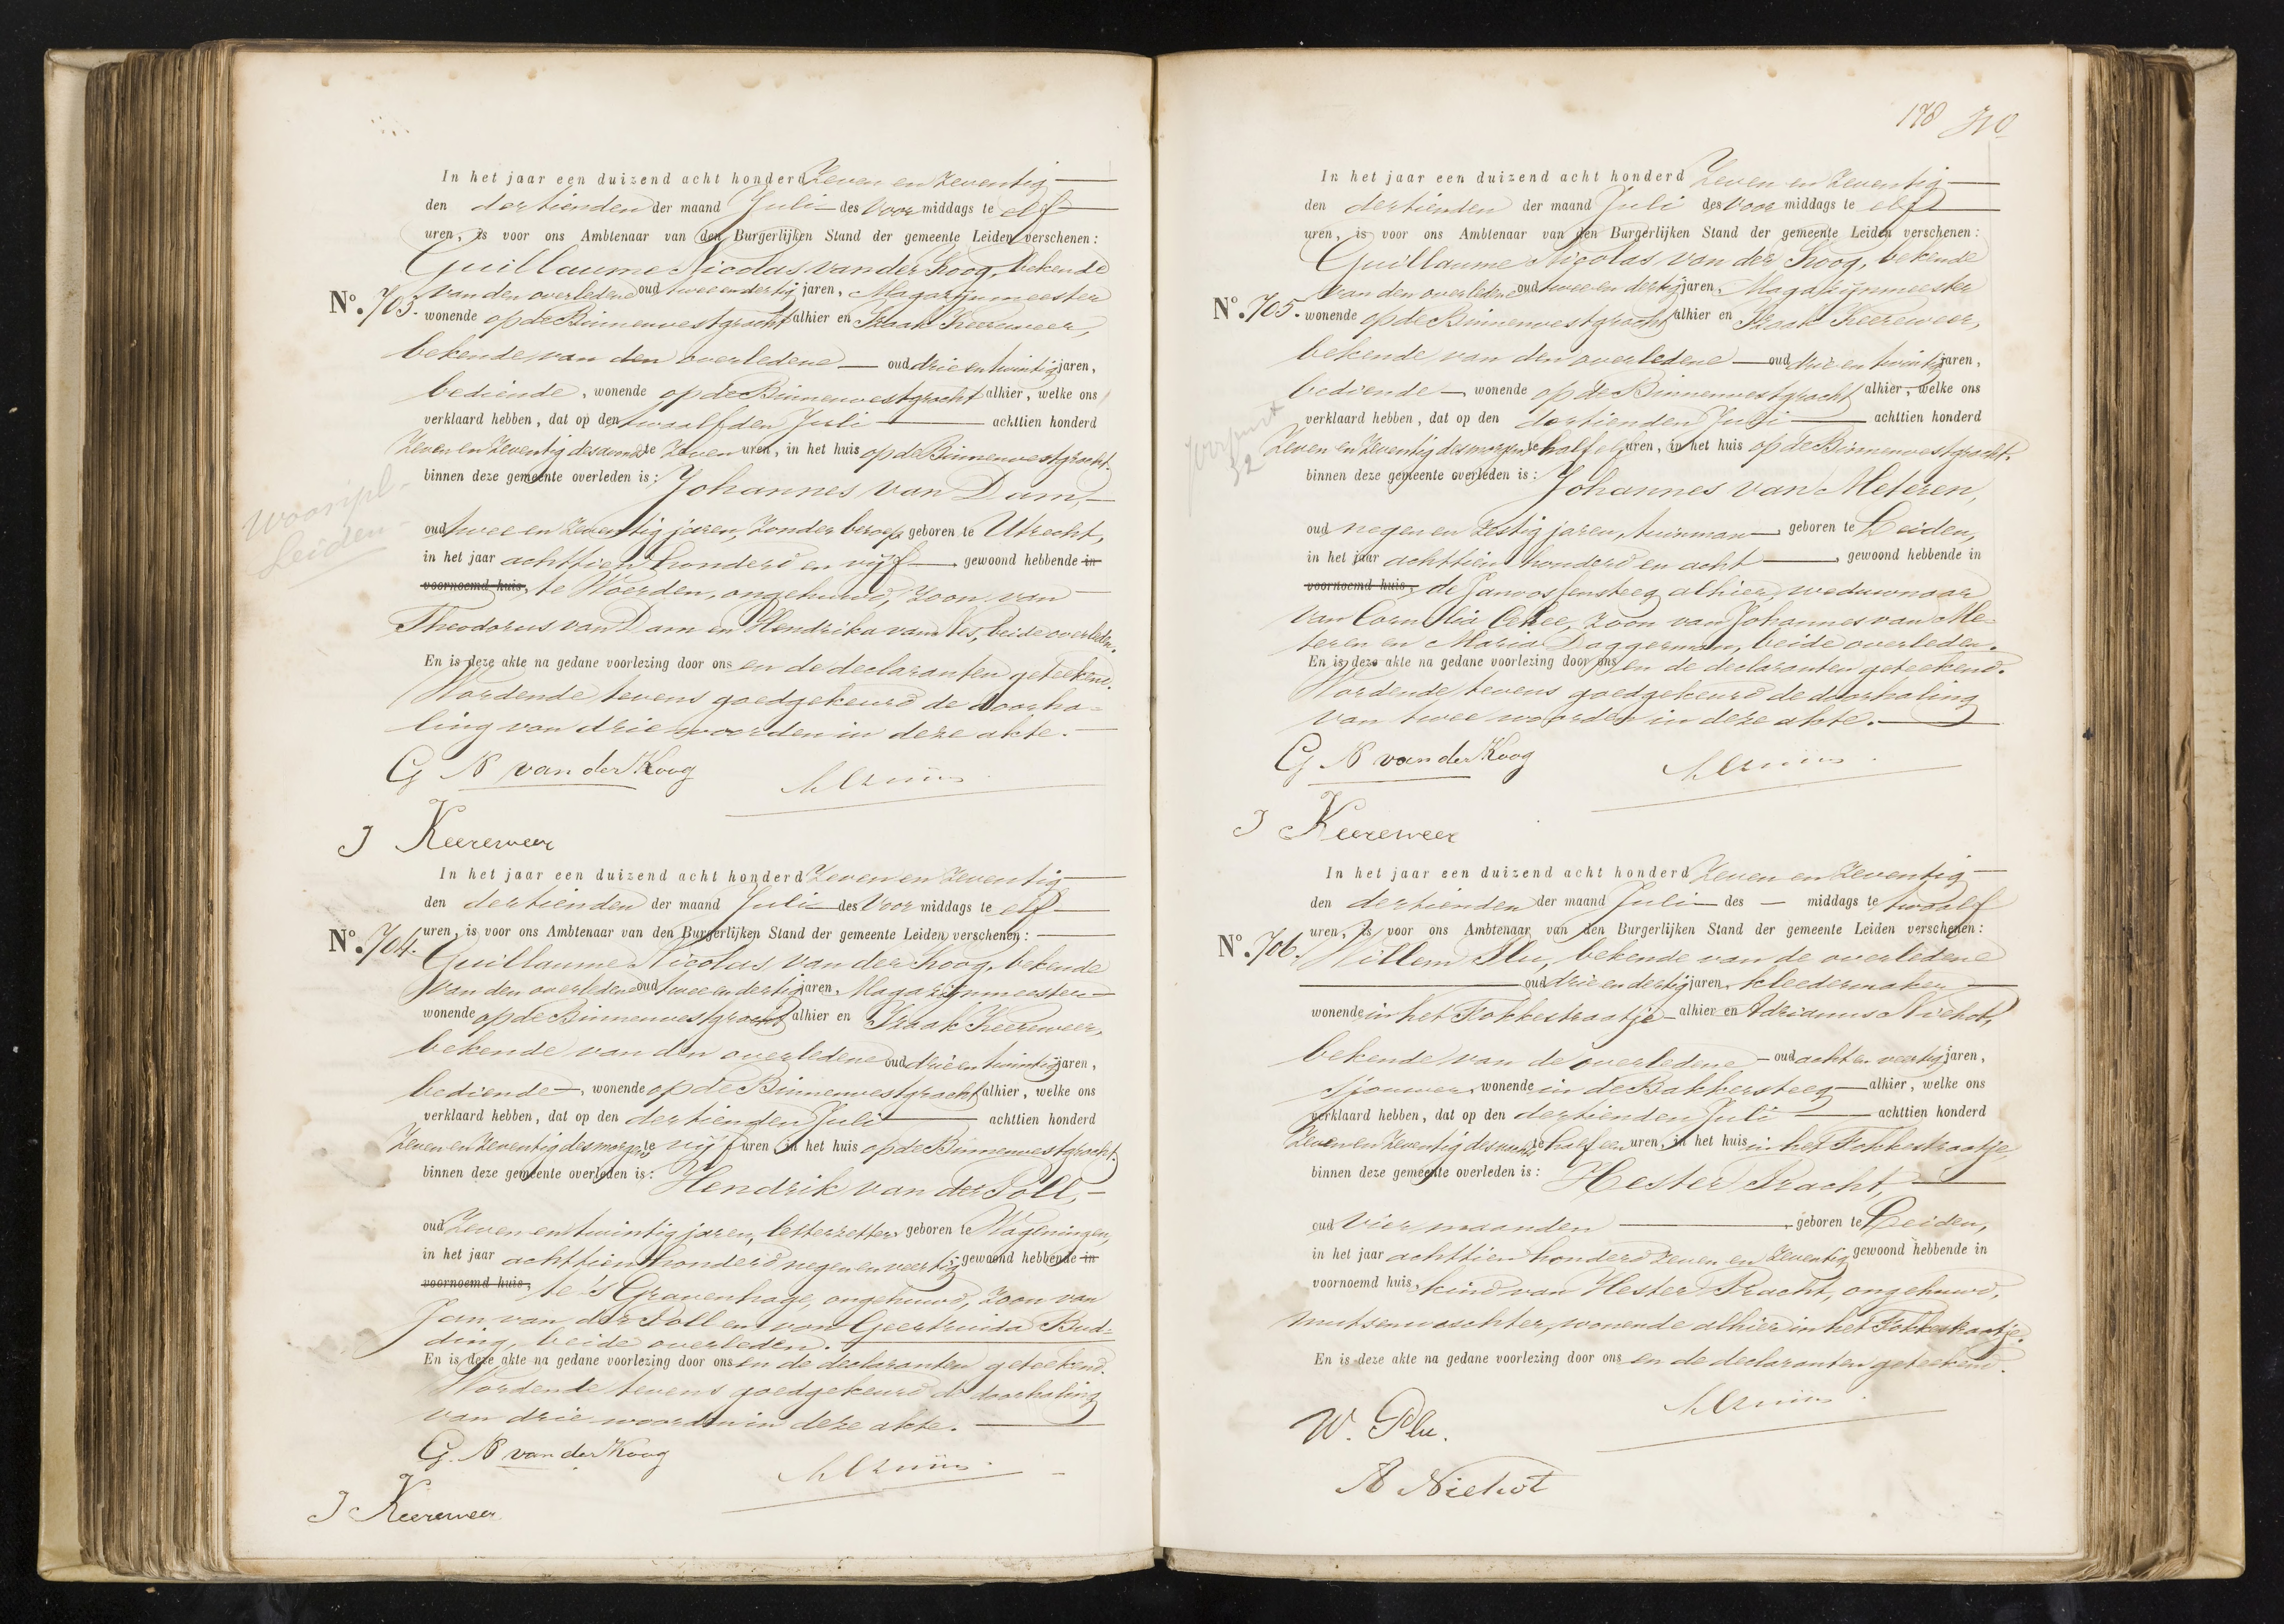 In het jaar een duizend acht honderd Zeven en Zeventig
den dertienden der maand Juli des Voor middags te elf
uren, is voor ons Ambtenaar van den Burgerlijken Stand der gemeente Leiden verschenen:
Guillaume Nicolas van der Koog, bekende
van den overledene oud twee en dertig jaren, Magazijnmeester
No. 703. wonende op de Binnenvestgracht alhier en Izaak Keereweer,
bekende van den overledene oud drie en twintig jaren,
bediende, wonende op de Binnenvestgracht alhier, welke ons
verklaard hebben, dat op den twaalfden Juli achttien honderd
Zeven en Zeventig des avonds te Zeven uren, in het huis op de Binnenvestgracht.
binnen deze gemeente overleden is: Johannes van Dam,
oud twee en Zeventig jaren, Zonder beroep geboren te Utrecht,
in het jaar achttien honderd en vijf, gewoond hebbende in
voornoemd huis, te Woerden, ongehuwd, Zoon van
Theodorus van Dam en Hendrika van Nes, beide overleden.
En is deze akte na gedane voorlezing door ons en de declaranten geteekend.
Wordende tevens goedgekeurd de doorha-
ling van drie woorden in deze akte.
G N van der Koog
I Keereweer
Leiden
In het jaar een duizend acht honderd Zeven en Zeventig
den dertienden der maand Juli des Voor middags te elf
uren, is voor ons Ambtenaar van den Burgerlijken Stand der gemeente Leiden verschenen:
No. 704. Guillaume Nicolas van der Koog, bekende
van den overledene oud twee en dertig jaren, Magazijnmeester
wonende op de Binnenvestgracht alhier en Izaak Keereweer,
bekende van den overledene oud drie en twintig jaren,
bediende, wonende op de Binnenvestgracht alhier, welke ons
verklaard hebben, dat op den dertienden Juli achttien honderd
Zeven en Zeventig des morgens te vijf uren in het huis op de Binnenvestgracht.
binnen deze gemeente overleden is: Hendrik van der Poll,
oud Zeven en twintig jaren, letterzetter geboren te Wageningen,
in het jaar achttien honderd negen en veertig, gewoond hebbende in
voornoemd huis, te 's Gravenhage, ongehuwd, Zoon van
Jan van der Poll en van Geertruida Bud-
ding, beide overleden.
En is deze akte na gedane voorlezing door ons en de declaranten geteekend.
Wordende tevens goedgekeurd de doorhaling
van drie woorden in deze akte.
G. N van der Koog
I Keereweer
178
In het jaar een duizend acht honderd Zeven en Zeventig
den dertienden der maand Juli des Voor middags te elf
uren, is voor ons Ambtenaar van den Burgerlijken Stand der gemeente Leiden verschenen:
Guillaume Nicolas van der Koog, bekende
van den overledene oud twee en dertig jaren, Magazijnmeester
No. 705. wonende op de Binnenvestgracht alhier en Izaak Keereweer,
bekende van den overledene oud drie en twintig jaren,
bediende wonende op de Binnenvestgracht alhier, welke ons
verklaard hebben, dat op den dertienden Juli achttien honderd
Zeven en Zeventig des morgens te half elf uren, in het huis op de Binnenvestgracht.
binnen deze gemeente overleden is: Johannes van Meteren,
oud negen en Zestig jaren, tuinman, geboren te Leiden,
in het jaar achttien honderd en acht, gewoond hebbende in
voornoemd huis, de Janvossensteeg alhier, weduwnaar
van Cornelia, Zoon van Johannes van Me-
teren en Maria Daggerman, beide overleden.
En is deze akte na gedane voorlezing door ons en de declaranten geteekend.
Wordende tevens goedgekeurd de doorhaling
van twee woorden in deze akte.
G N van der Koog
I Keereweer
In het jaar een duizend acht honderd Zeven en Zeventig
den dertienden der maand Juli des — middags te twaalf
uren, is voor ons Ambtenaar van den Burgerlijken Stand der gemeente Leiden verschenen:
No. 706. Willem Plu, bekende van de overledene
oud drie en dertig jaren, kleedermaker
wonende in het Fokkestraatje alhier en Adrianus Niehot,
bekende van de overledene oud acht en veertig jaren,
sjouwer, wonende in de Bakkersteeg alhier, welke ons
verklaard hebben, dat op den dertienden Juli achttien honderd
Zeven en Zeventig des nachts te half een uren, in het huis in het Fokkestraatje,
binnen deze gemeente overleden is: Hester Pracht,
oud vier maanden, geboren te Leiden,
in het jaar achttien honderd Zeven en Zeventig gewoond hebbende in
voornoemd huis, kind van Hester Pracht, ongehuwd,
mutsenwaschter, wonende alhier in het Fokkestraatje.
En is deze akte na gedane voorlezing door ons en de declaranten geteekend.
W. Plu.
A Niehot